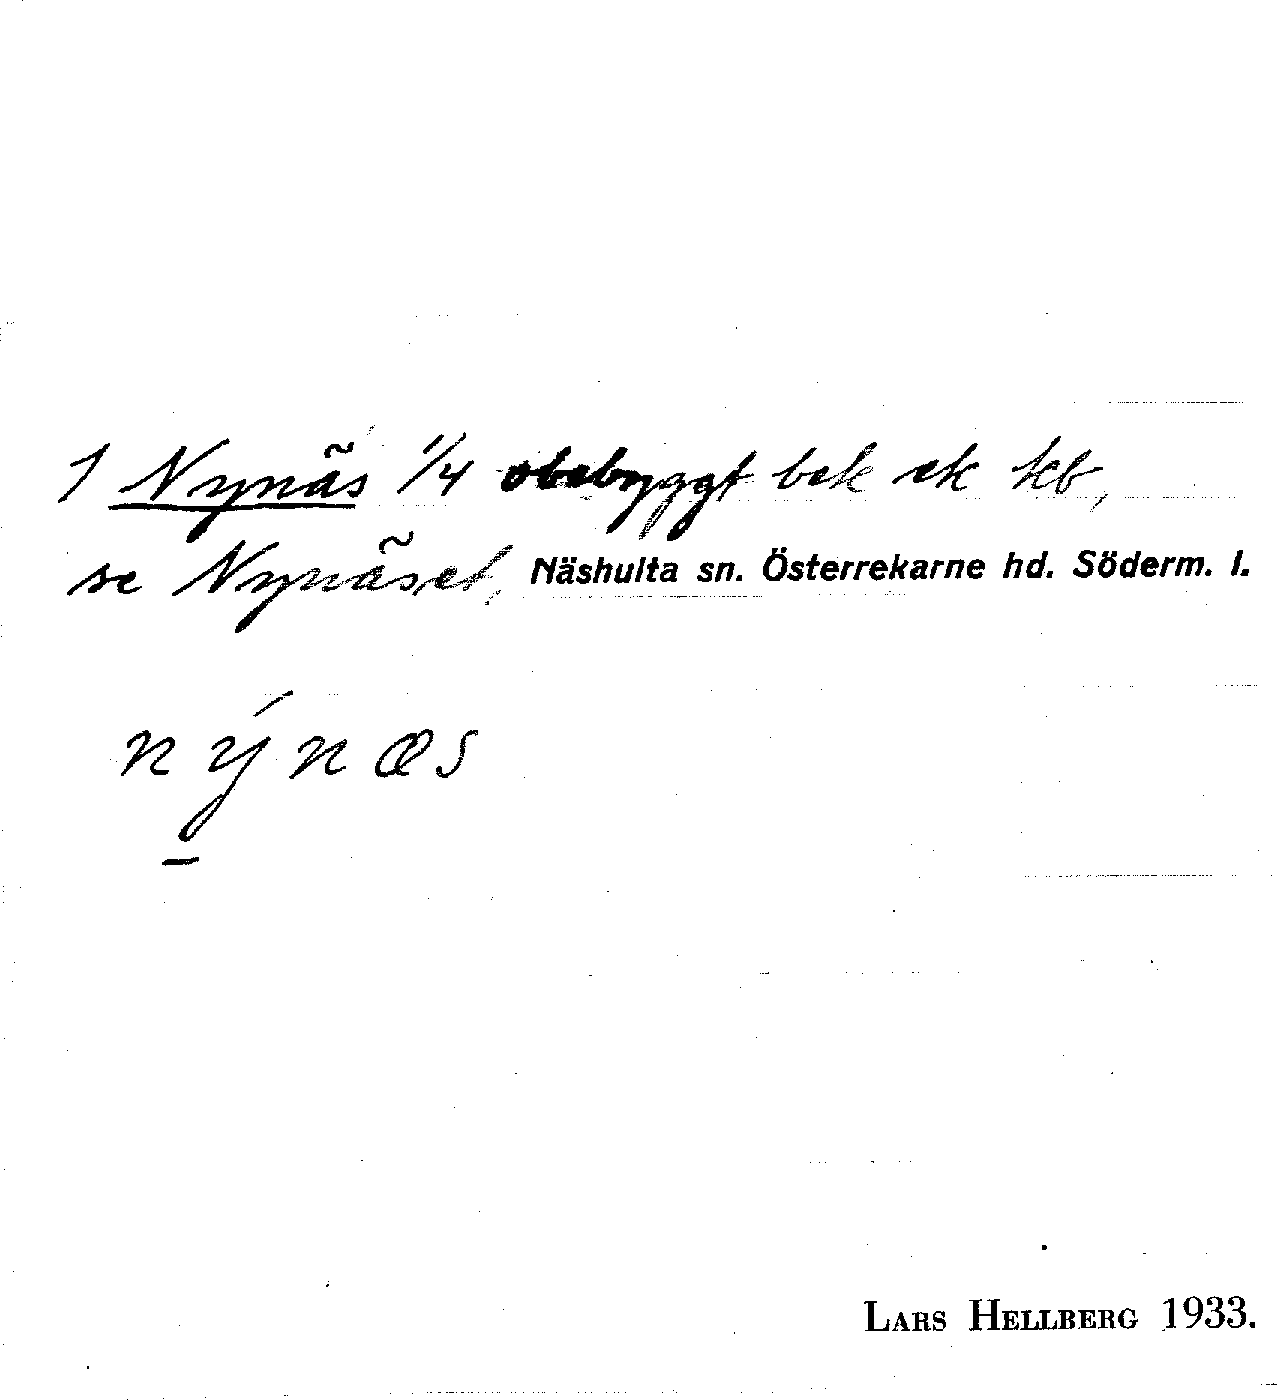 1 Nynäs 1/4 obebyggt bek ek kb,
se Nynäset, Näshulta sn. Österrekarne hd. Söderm. l.
nýnæs
LARS HELLBERG 1933.